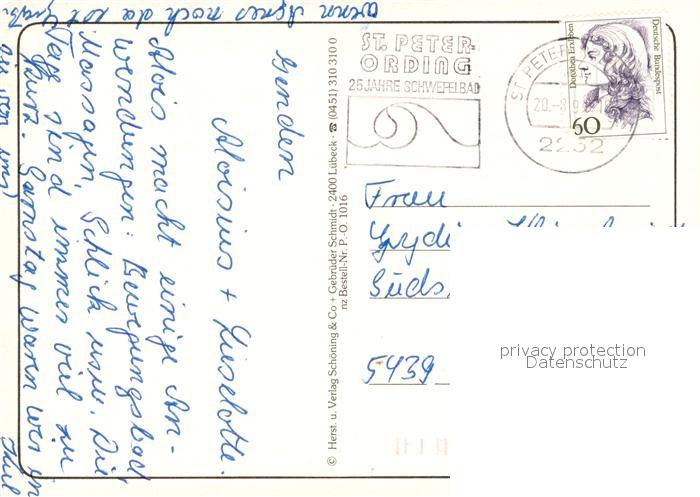 wenn Agnes noch da ist
Senden
Aloisius + Lieselotte.
Alois macht einige An-
wendungen: Bewegungsbad
Massagen, Schlick usw. Die
Tage sind immer viel zu
kurz. Samstag waren wir in
© Herst. u. Verlag Schöning & Co + Gebrüder Schmidt · 2400 Lübeck · ☎ (0451) 310 310 0
nz Bestell-Nr. P.-O. 1016
ST. PETER-
ORDING
25 JAHRE SCHWEFELBAD
ST. PETER
20.-8.9
2252
Dorothea Erxleben
Deutsche Bundespost
60
Frau
Süds.
5439
privacy protection
Datenschutz